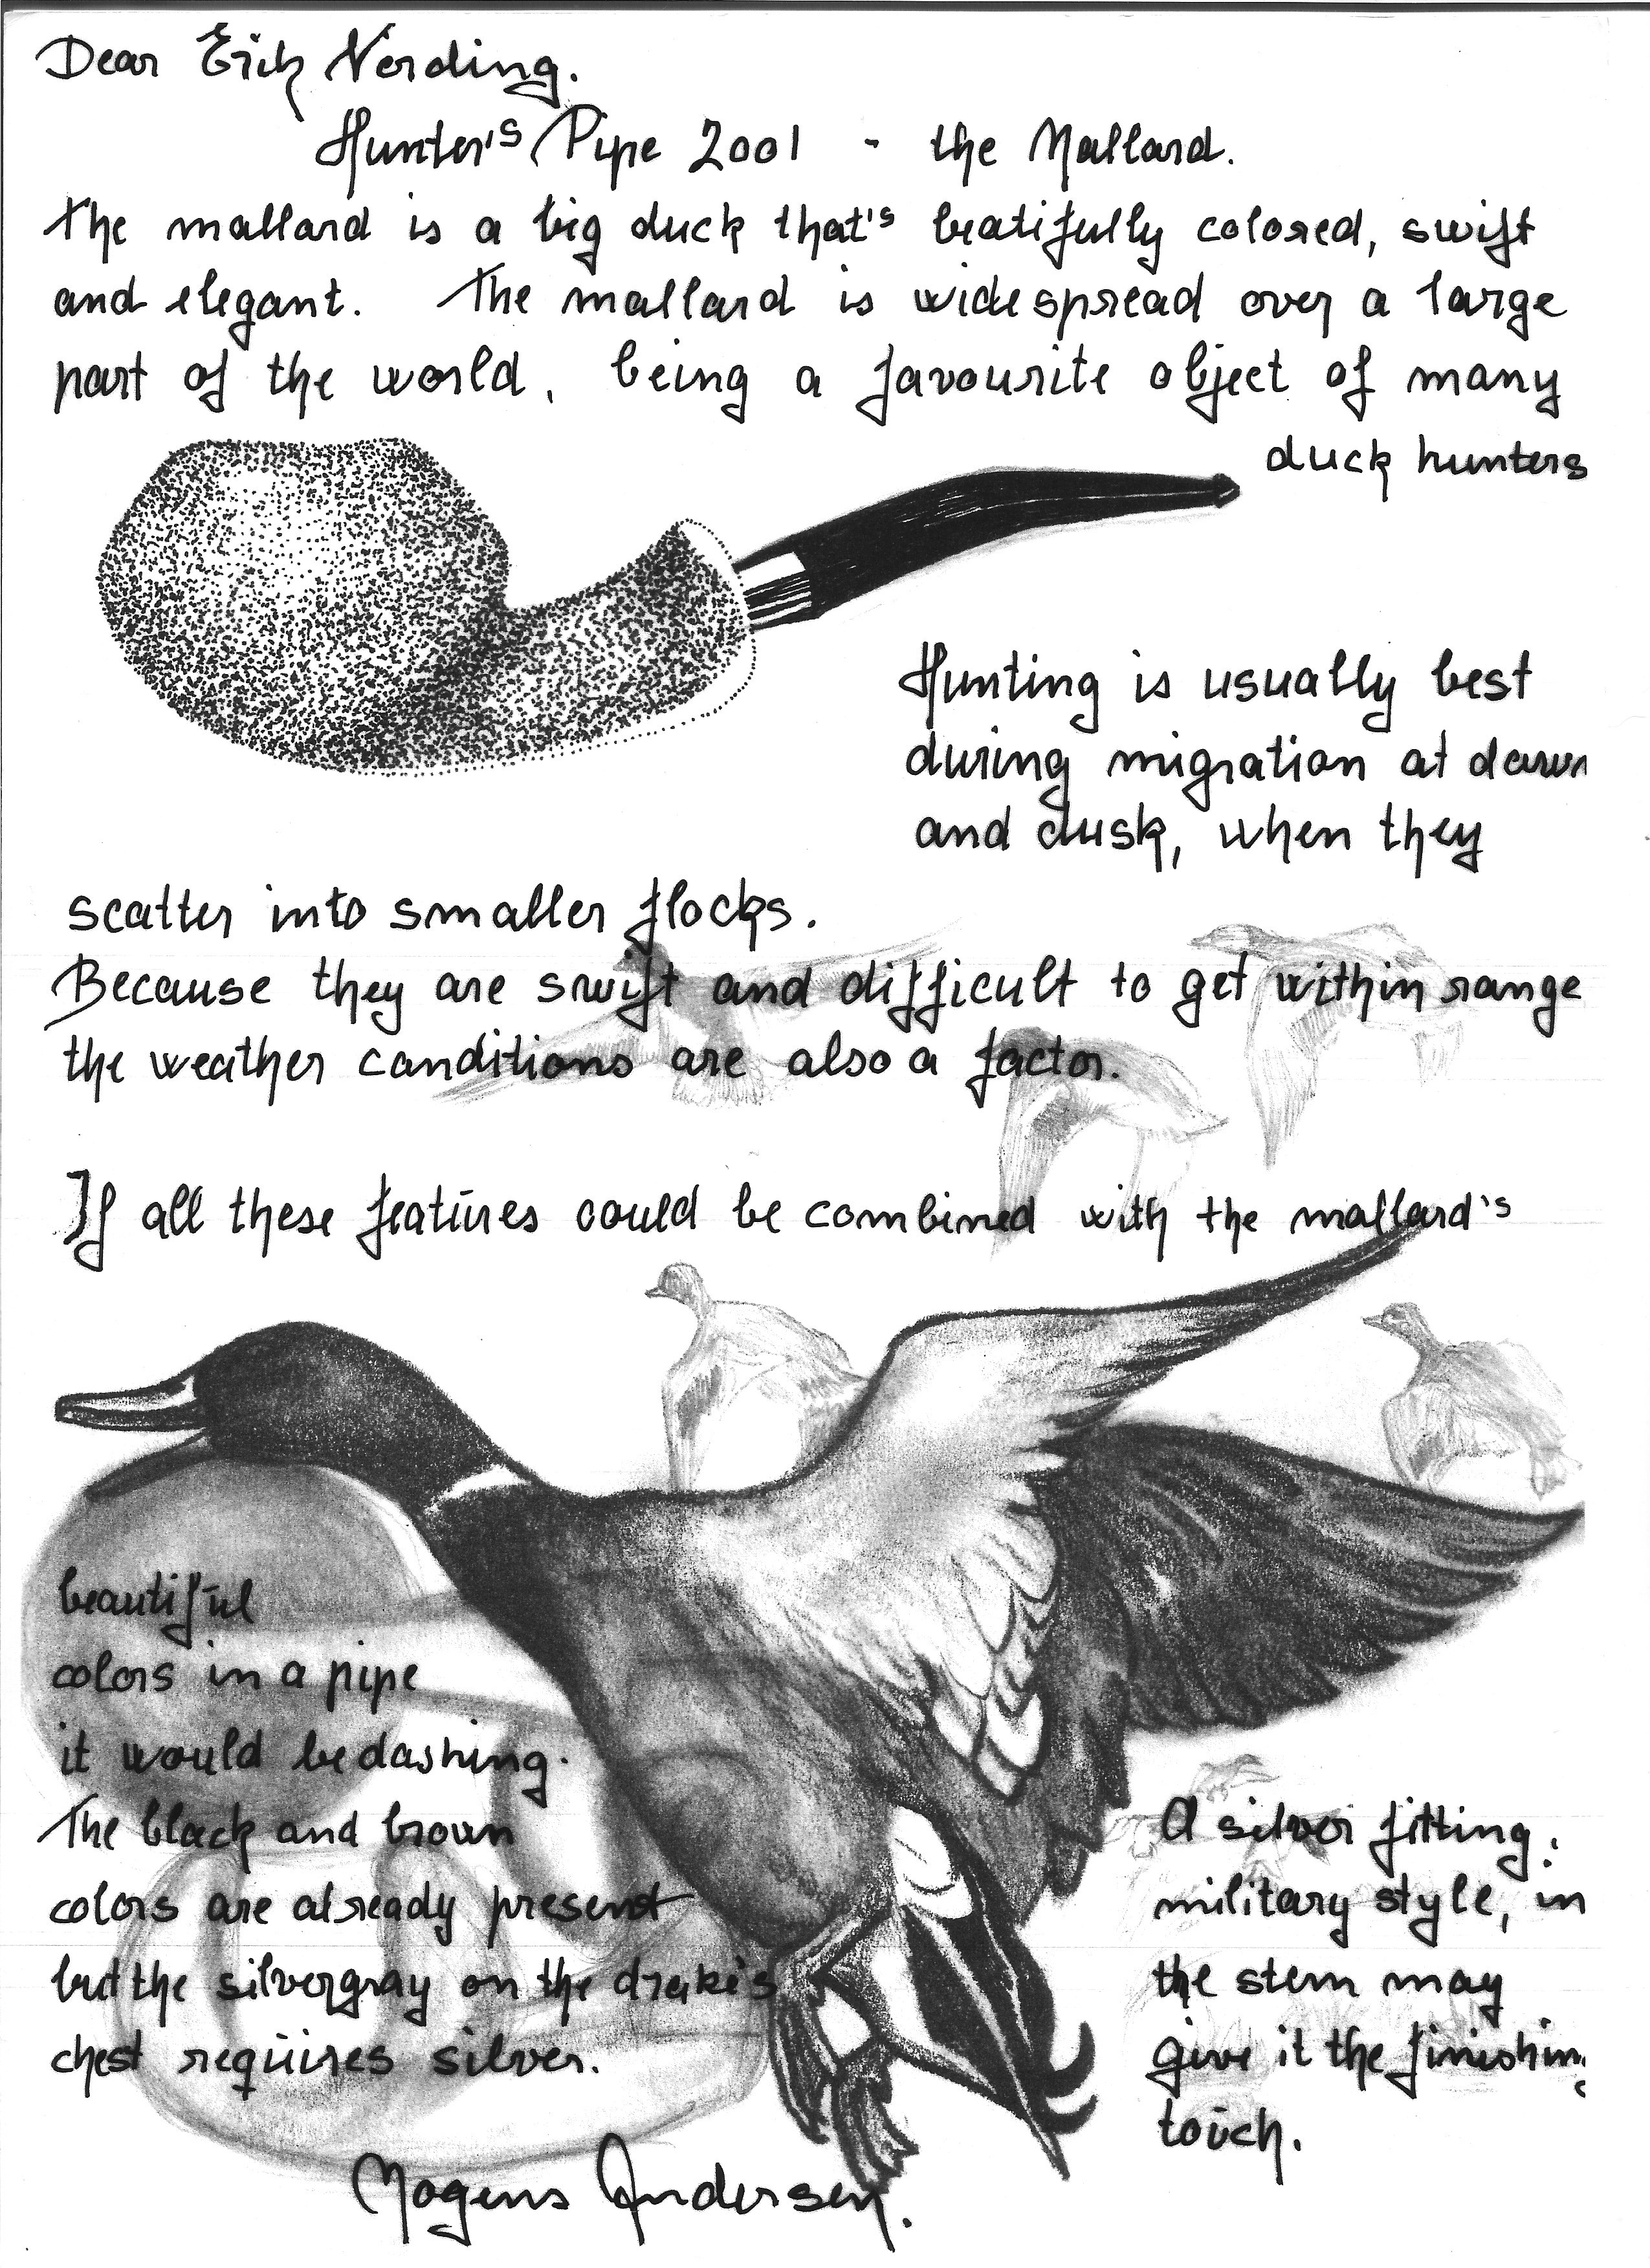 Dear Erik Nording.
Hunter's Pipe 2001 - the Mallard.
The mallard is a big duck that's beatifully colored, swift
and elegant. The mallard is widespread over a large
part of the world, being a favourite object of many
duck hunters
Hunting is usually best
during migration at dawn
and dusk, when they
scatter into smaller flocks.
Because they are swift and difficult to get within range
the weather conditions are also a factor.
If all these features could be combined with the mallard's
beautiful
colors in a pipe
it would be dashing.
The black and brown
colors are already present
but the silvergray on the drake's
chest requires silver.
A silver fitting,
military style, in
the stem may
give it the finishing
touch.
Mogens Andersen.